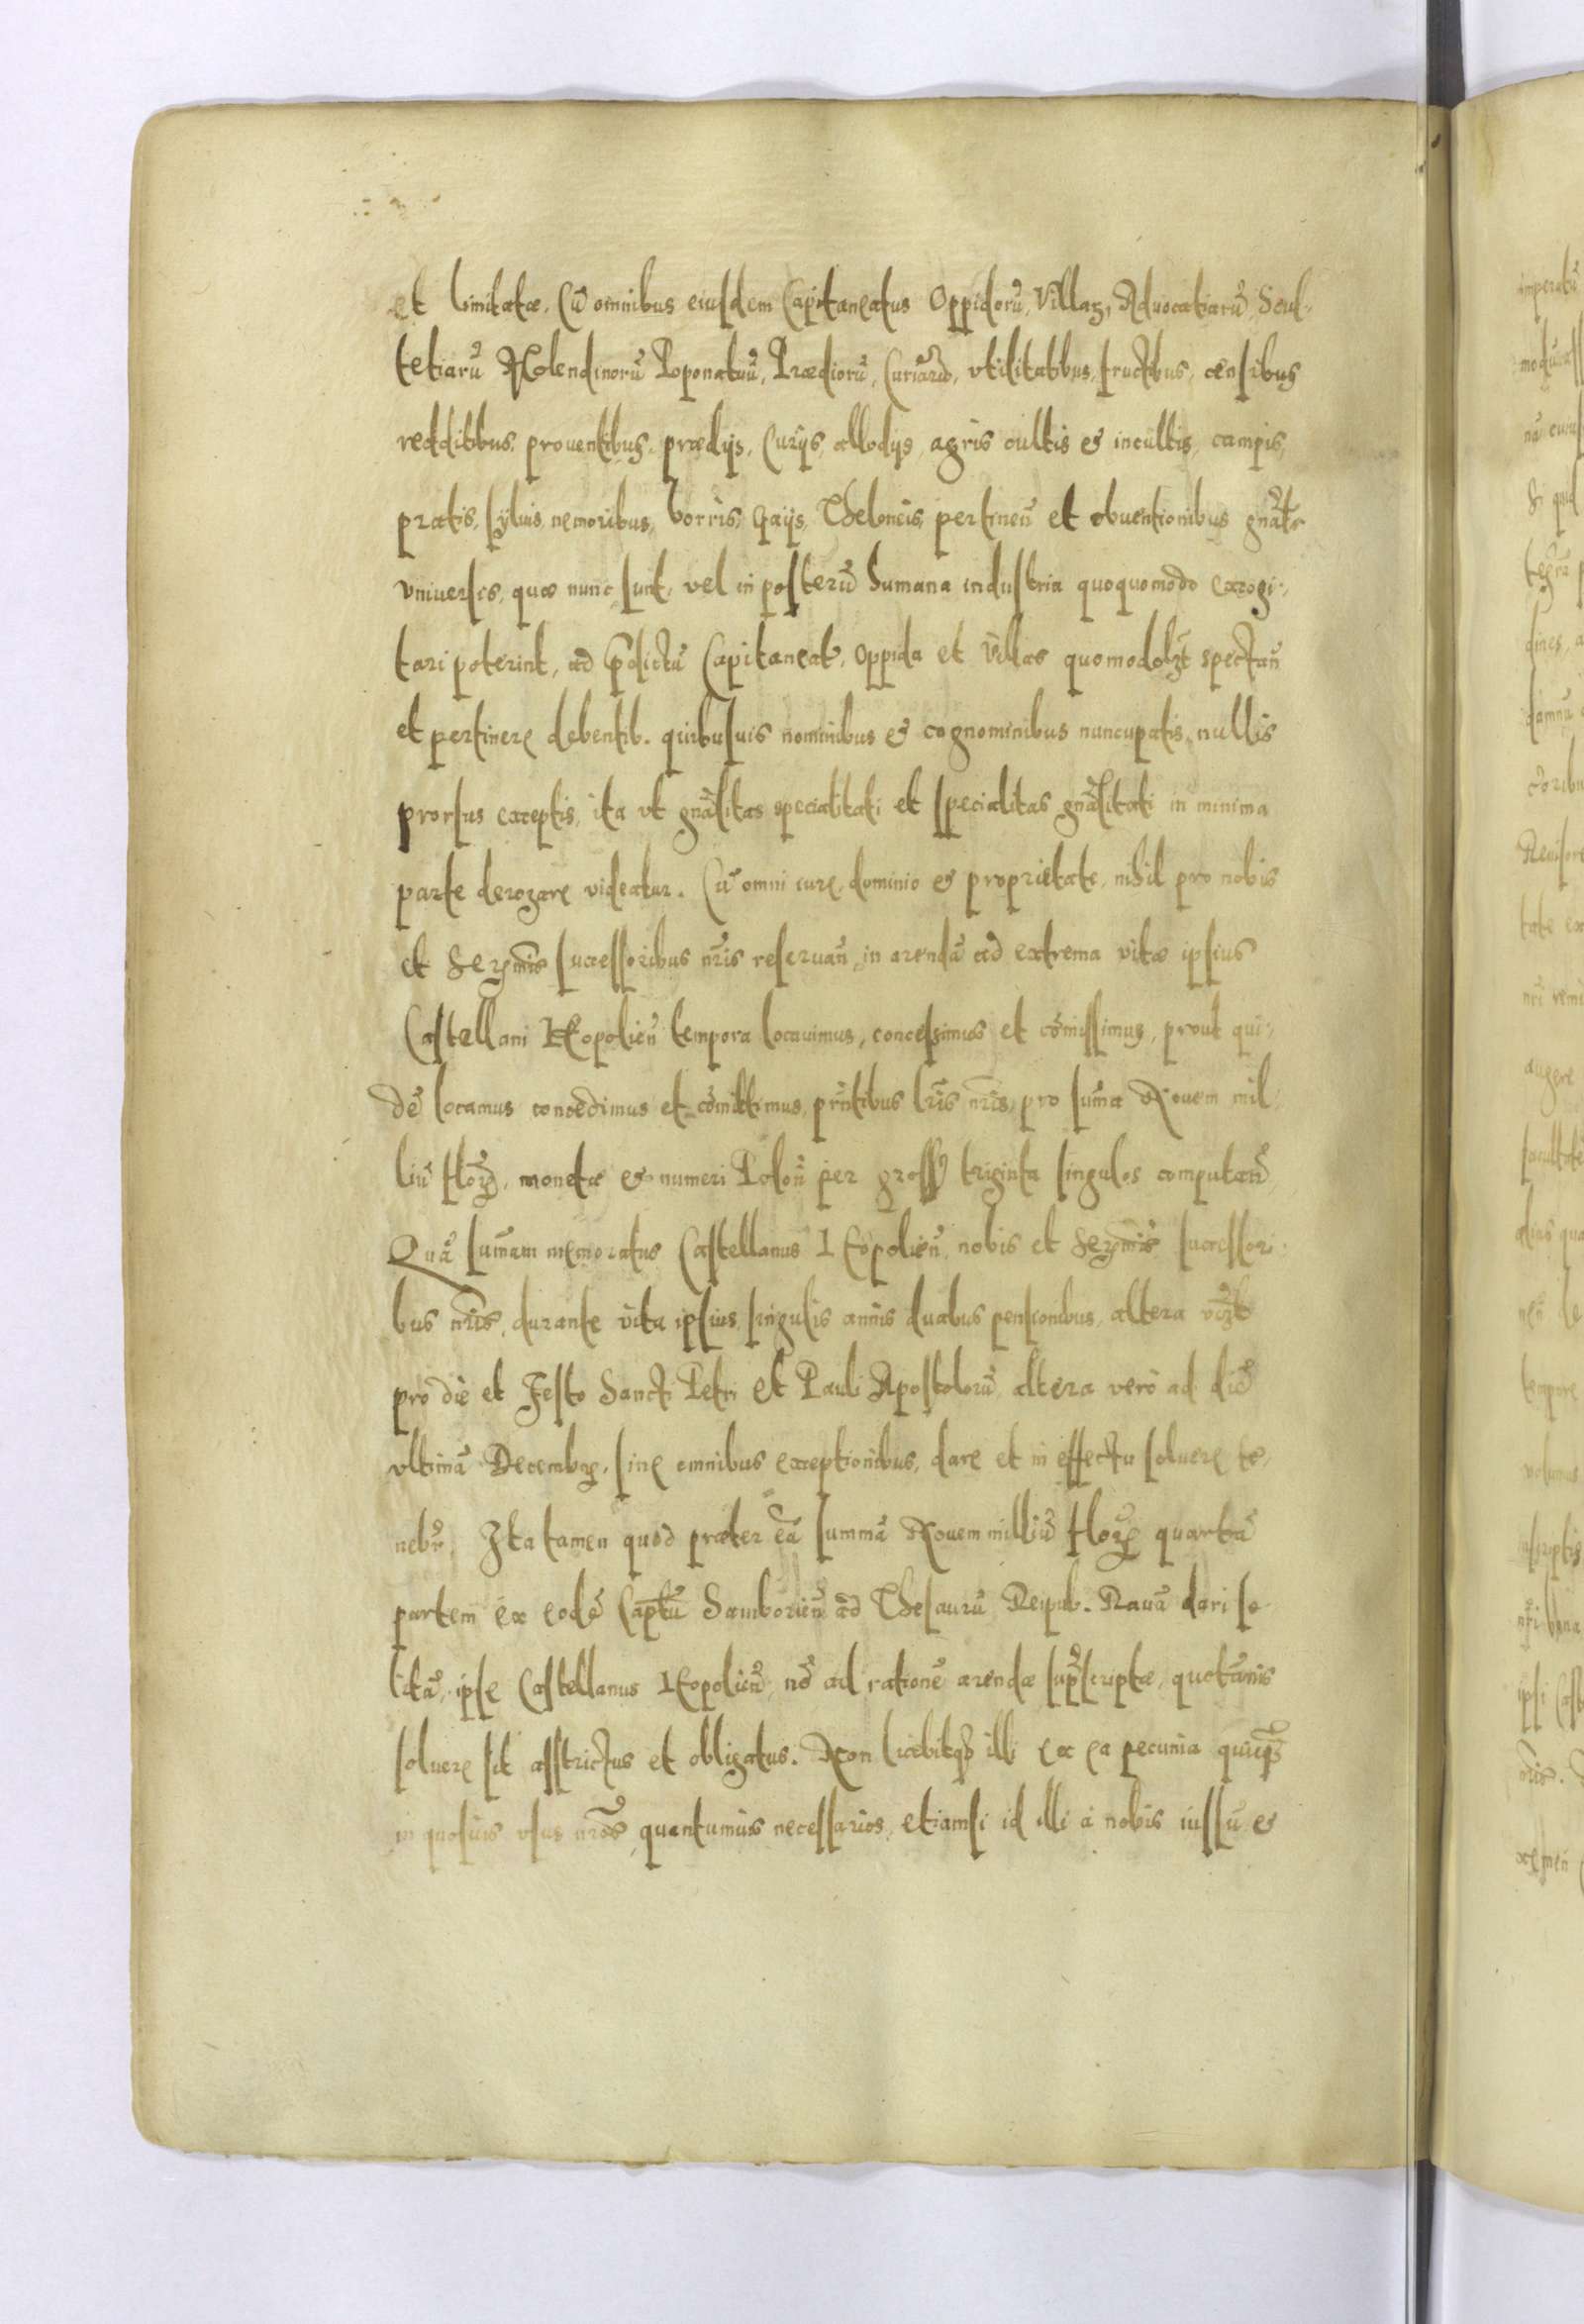 et limitatæ. Cũ omnibus eiusdem Capitaneatus Oppidorũ, Villarꝫ, Advocatiarũ Scul-
tetiarũ Molendinorũ Poponatuũ, Prædiorũ, Curiarũ, vtilitatibus, fructibus, censibus
redditibus, prouentibus, prædijs, Curijs, allodijs, agris cultis et incultis, campis,
pratis, syluis, nemoribus, borris, gaijs, Theloneis, pertineñ et obuentionibus gñatr
vniuersis, quæ nunc sunt, vel in posterũ humana industria quoquomodo excogi-
tari poterint, ad p̃dictũ Capitaneat, Oppida et Villas quomodolꝫt spectañ
et pertinere debentib. quibusuis nominibus et cognominibus nuncupatis, nullis
prorsus exceptis, ita vt gñalitas specialitati et specialitas gñalitati in minima
parte derogare videatur. Cũ omni iure, dominio et proprietate, nihil pro nobis
et Serẽmis successoribus nr̃is reseruañ, in arendã ad extrema vitæ ipsius
Castellani Leopolieñ tempora locauimus, concessimus et com̃issimus, prout qui-
dẽ locamus concedimus et com̃ittimus, pñtibus lr̃is nr̃is, pro sum̃a Nouem mil-
liũ floꝝ, monetæ et numeri Poloñ per gross triginta singulos computañ
Quã sum̃am memoratus Castellanus Leopolieñ nobis et Serẽmis successori-
bus nr̃is, durante vita ipsius, singulis annis duabus pensionibus, altera vꝫt
pro die et Festo Sancti Petri et Pauli Apostolorũ, altera verò ad diẽ
vltimã Decembrꝭ, sine omnibus exceptionibus, dare et in effectu soluere te-
nebr̃. Ita tamen quod præter eã summã Nouem milliũ floꝝ quartã
partem ex eodẽ Captũ Samborieñ ad Thesaurũ Reipub. Rauã dari so-
litã, ipse Castellanus Leopolieñ, nõ ad rationẽ arendæ sup̃scriptæ, quotannis
soluere sit asstrictus et obligatus. Non licebitqꝫ illi ex ea pecunia quicqꝫ
in quosuis vsus nr̃os, quantumuis necessarios, etiamsi id illi à nobis iussũ et